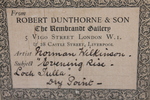 From
ROBERT DUNTHORNE & SON
The Rembrandt Gallery
5 VIGO STREET LONDON W.1,
& 28 CASTLE STREET, LIVERPOOL
Artist Norman Wilkinson
Subject "Evening Rise"
Loch Tulla
Dry Point